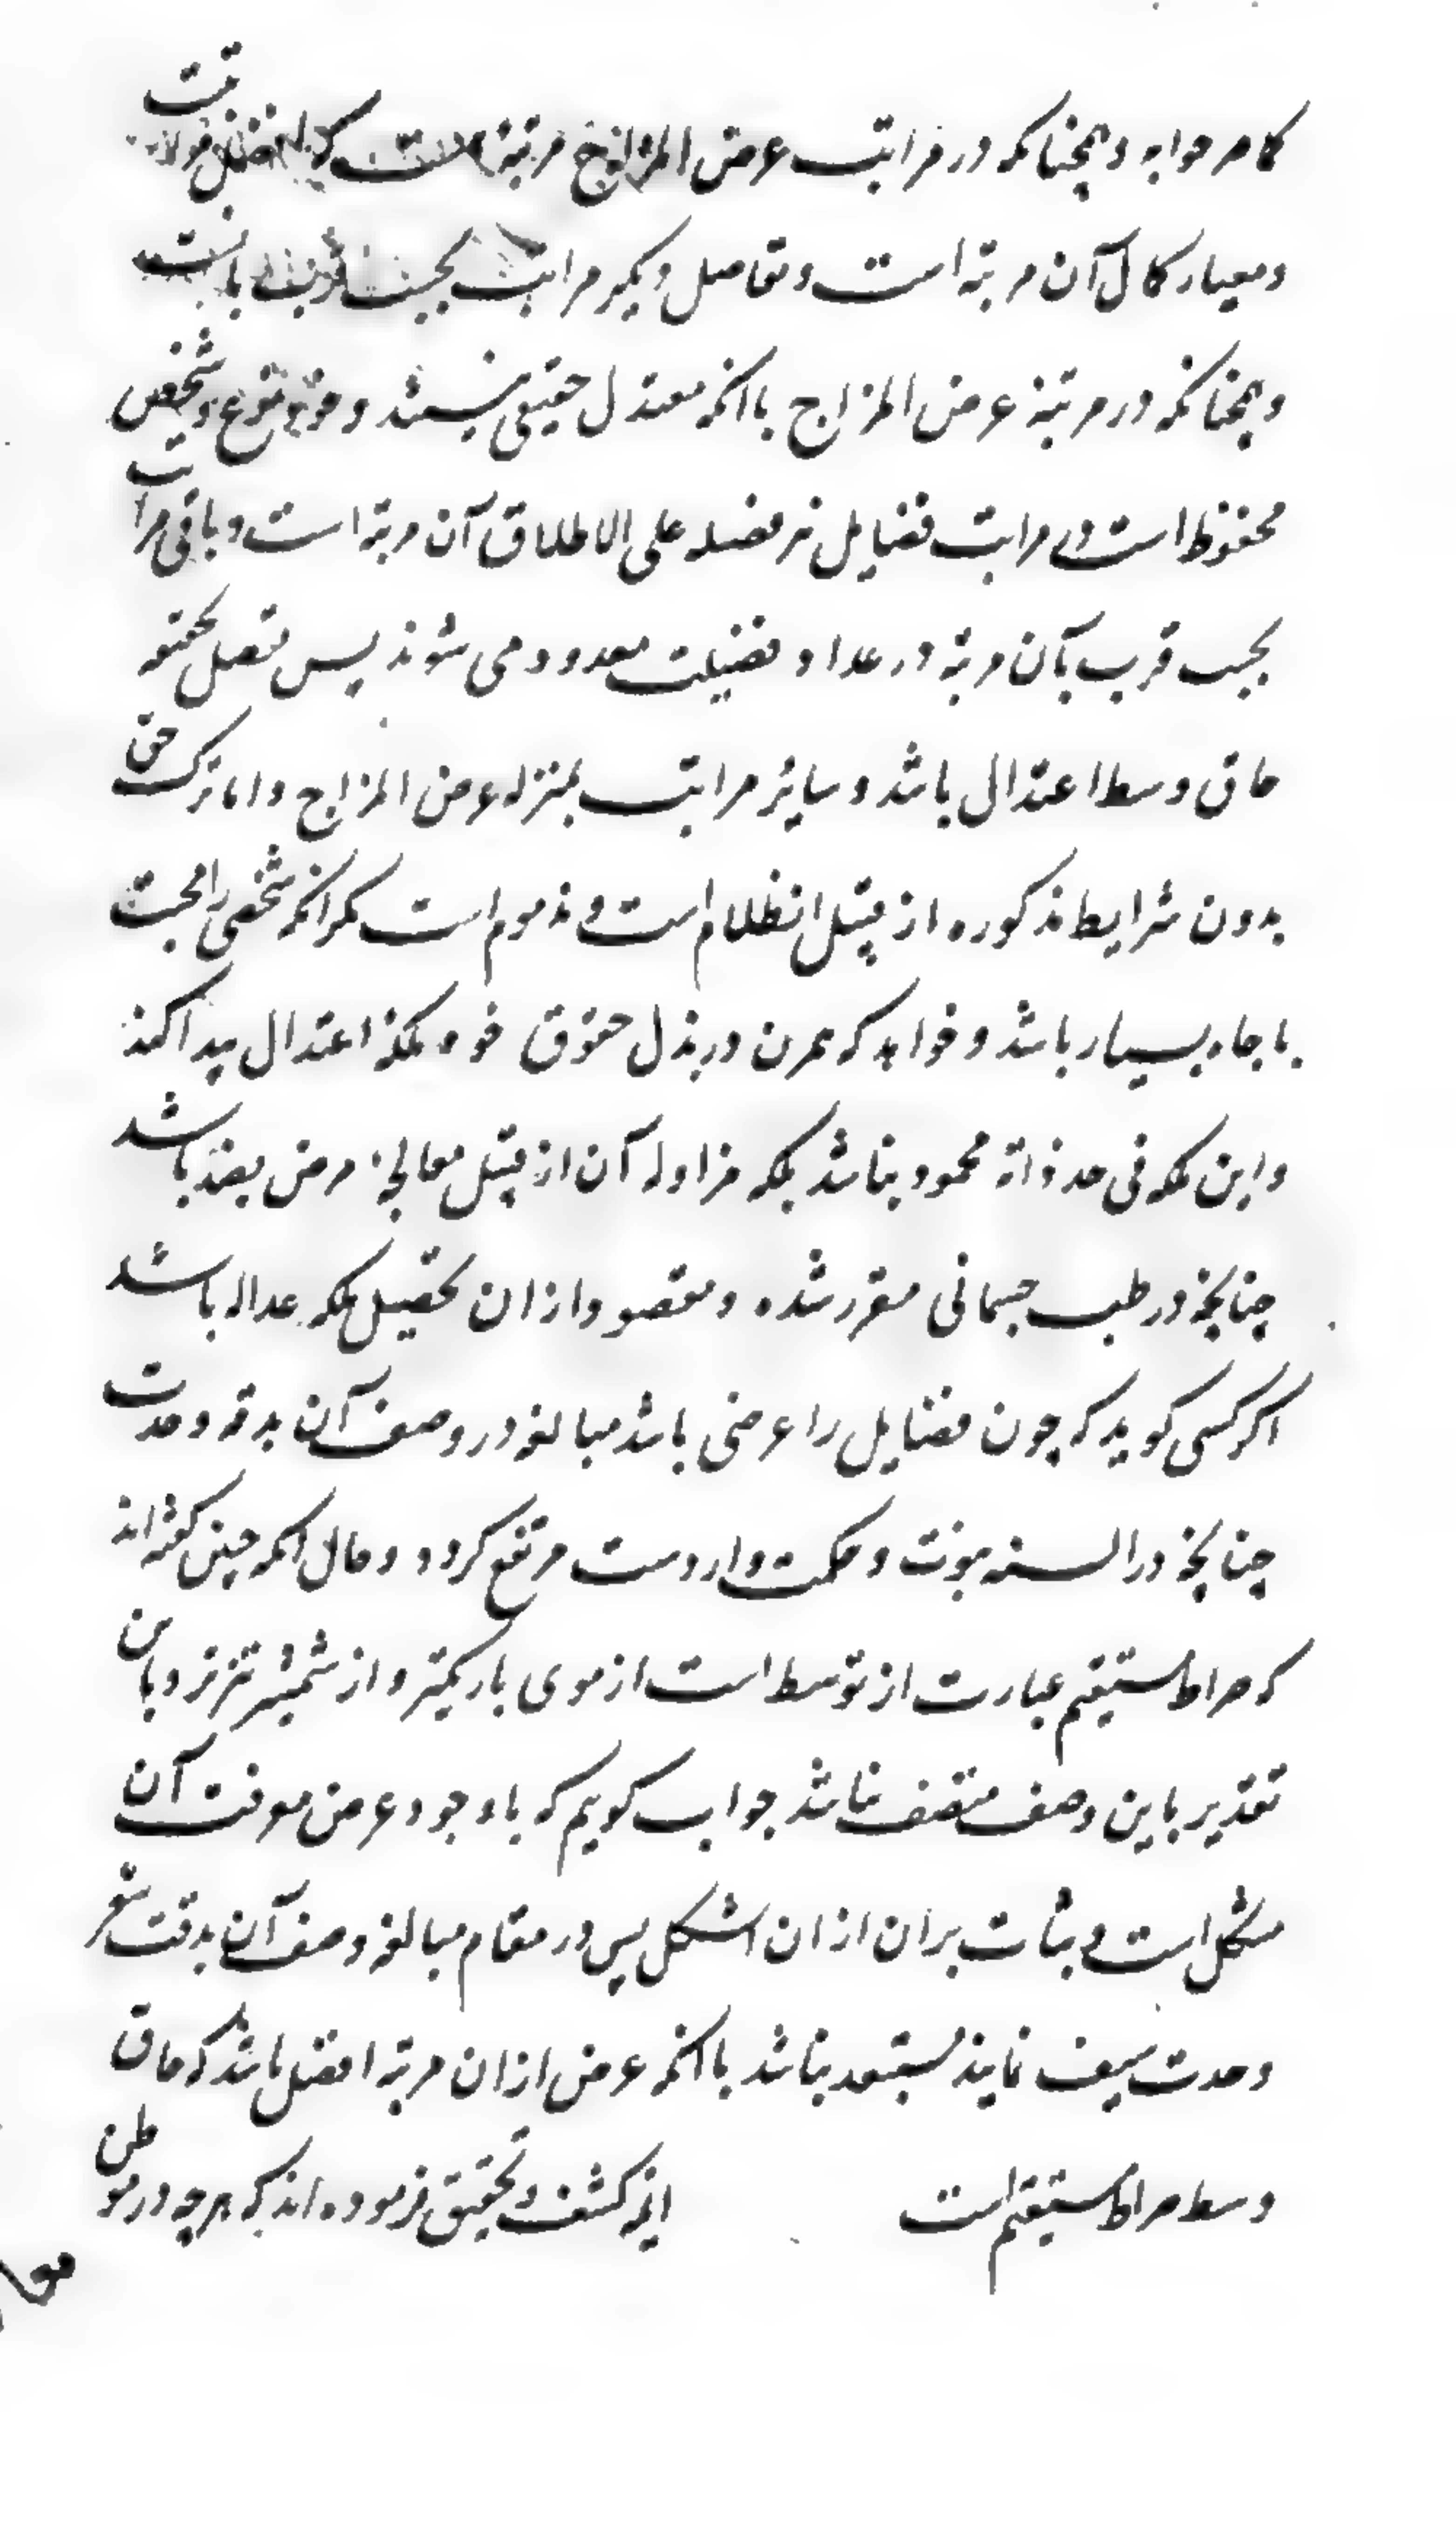 کما صرحوا به و همچنانکه در مراتب عرض المزاج مرتبهٔ است که افضل
و معیار کمال آن مرتبه است و تفاضل دیگر مراتب بحسب قرب بآنست
و همچنانکه در مرتبهٔ عرض المزاج با آنکه معتدل حقیقی نیستند و نوع و شخص
محفوظ است در مراتب فضایل نیز فضیله علی الاطلاق آن مرتبه است و باقی مراتب
بحسب قرب بآن مرتبه در عداد فضیلت معدود می شوند پس
حاق وسط اعتدال باشد و سایر مراتب بمنزله عرض المزاج و اما ترک حق
بدون شرایط مذکوره از قبیل انظلام است و مذموم است مگر آنکه شخصی را محبت
با جاه بسیار باشد و خواهد که بتمرن در بذل حقوق خود ملکهٔ اعتدال پیدا کند
و این ملکه فی حد ذاته محمود نباشد بلکه مزاوله آن از قبیل معالجهٔ مرض بضد باشد
چنانچه در طب جسمانی مقرر شده و مقصود ازان تحصیل ملکه عداله باشد
اگر کسی گوید که چون فضایل را عرضی باشد مبالغه در وصف آن بدقه و حدت
چنانچه در السنه نبوت و حکمت واردست مرتفع گردد و حال آنکه چنین گفته اند
که صراط مستقیم عبارت از توسط است از موی باریکتر و از شمشیر تیزتر و باین
تقدیر باین وصف متصف نباشد جواب گویم که با وجود عرض معرفت آن
مشکل است و ثبات بران ازان اشکل پس در مقام مبالغه وصف آن بدقت شعر
و حدت سیف نمایند مستبعد نباشد با آنکه عرض ازان مرتبه افضل باشد که حاق
وسط صراط مستقیم است ایمهٔ کشف و تحقیق فرموده اند که هرچه در موطن